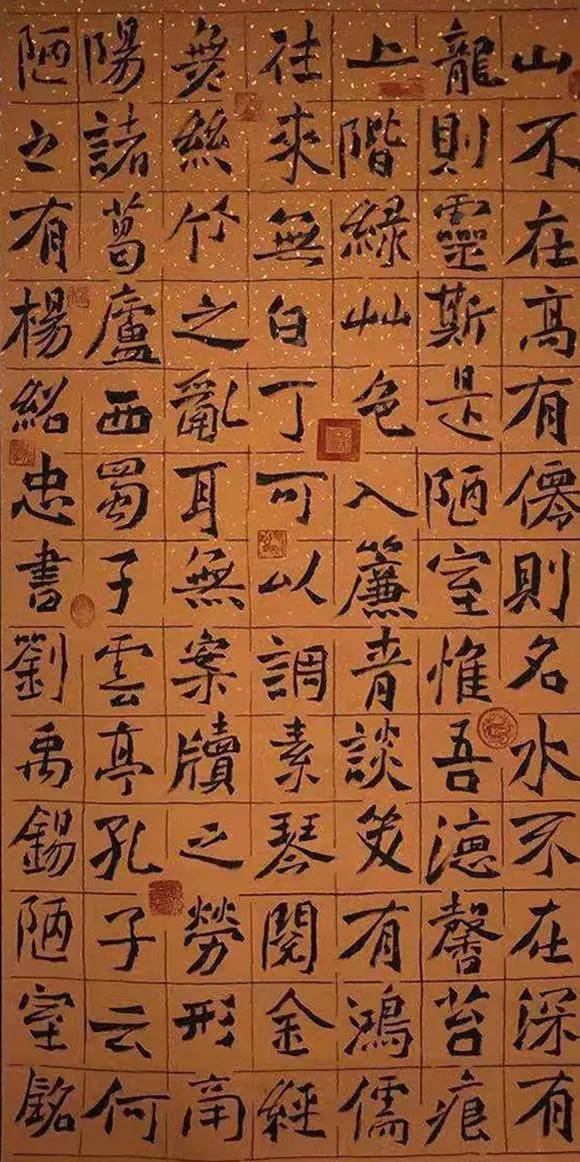 山不在高有僊則名水不在深有
龍則靈斯是陋室惟吾德馨苔痕
上階緑艸色入簾青談笑有鴻儒
往來無白丁可以調素琴閱金經
無絲竹之亂耳無案牘之勞形南
陽諸葛廬西蜀子雲亭孔子云何
陋之有楊紹忠書劉禹錫陋室銘